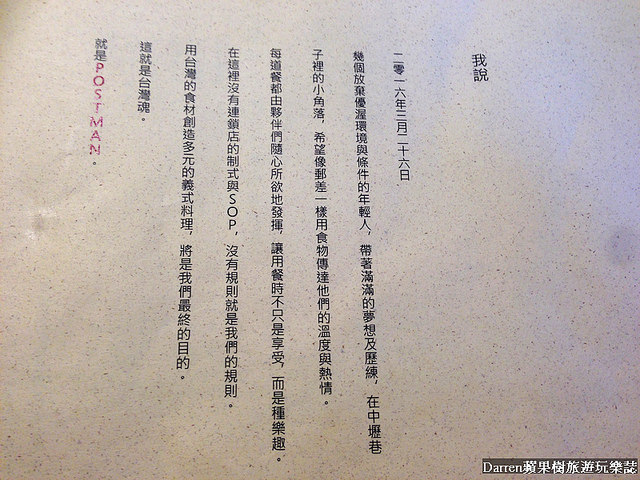 我說
二零一六年三月二十六日
幾個放棄優渥環境與條件的年輕人，帶著滿滿的夢想及歷練，在中壢巷
子裡的小角落，希望像郵差一樣用食物傳達他們的溫度與熱情。
每道餐都由夥伴們隨心所欲地發揮，讓用餐時不只是享受，而是種樂趣。
在這裡沒有連鎖店的制式與SOP，沒有規則就是我們的規則。
用台灣的食材創造多元的義式料理，將是我們最終的目的。
這就是台灣魂。
就是POSTMAN。
Darren蘋果樹旅遊玩樂誌